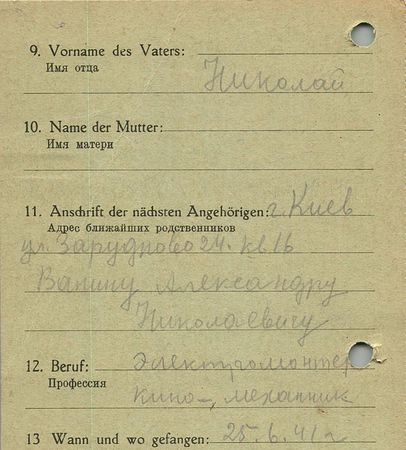 9. Vorname des Vaters:
Имя отца
Николай
10. Name der Mutter:
Имя матери
11. Anschrift der nächsten Angehörigen: г. Киев
Адрес ближайших родственников
ул. Зарудново 24. кв 16
Ванину Александру
Николаевичу
12. Beruf: Электромонтер
Профессия
кино-, механник
13 Wann und wo gefangen: 25. 6. 41 г